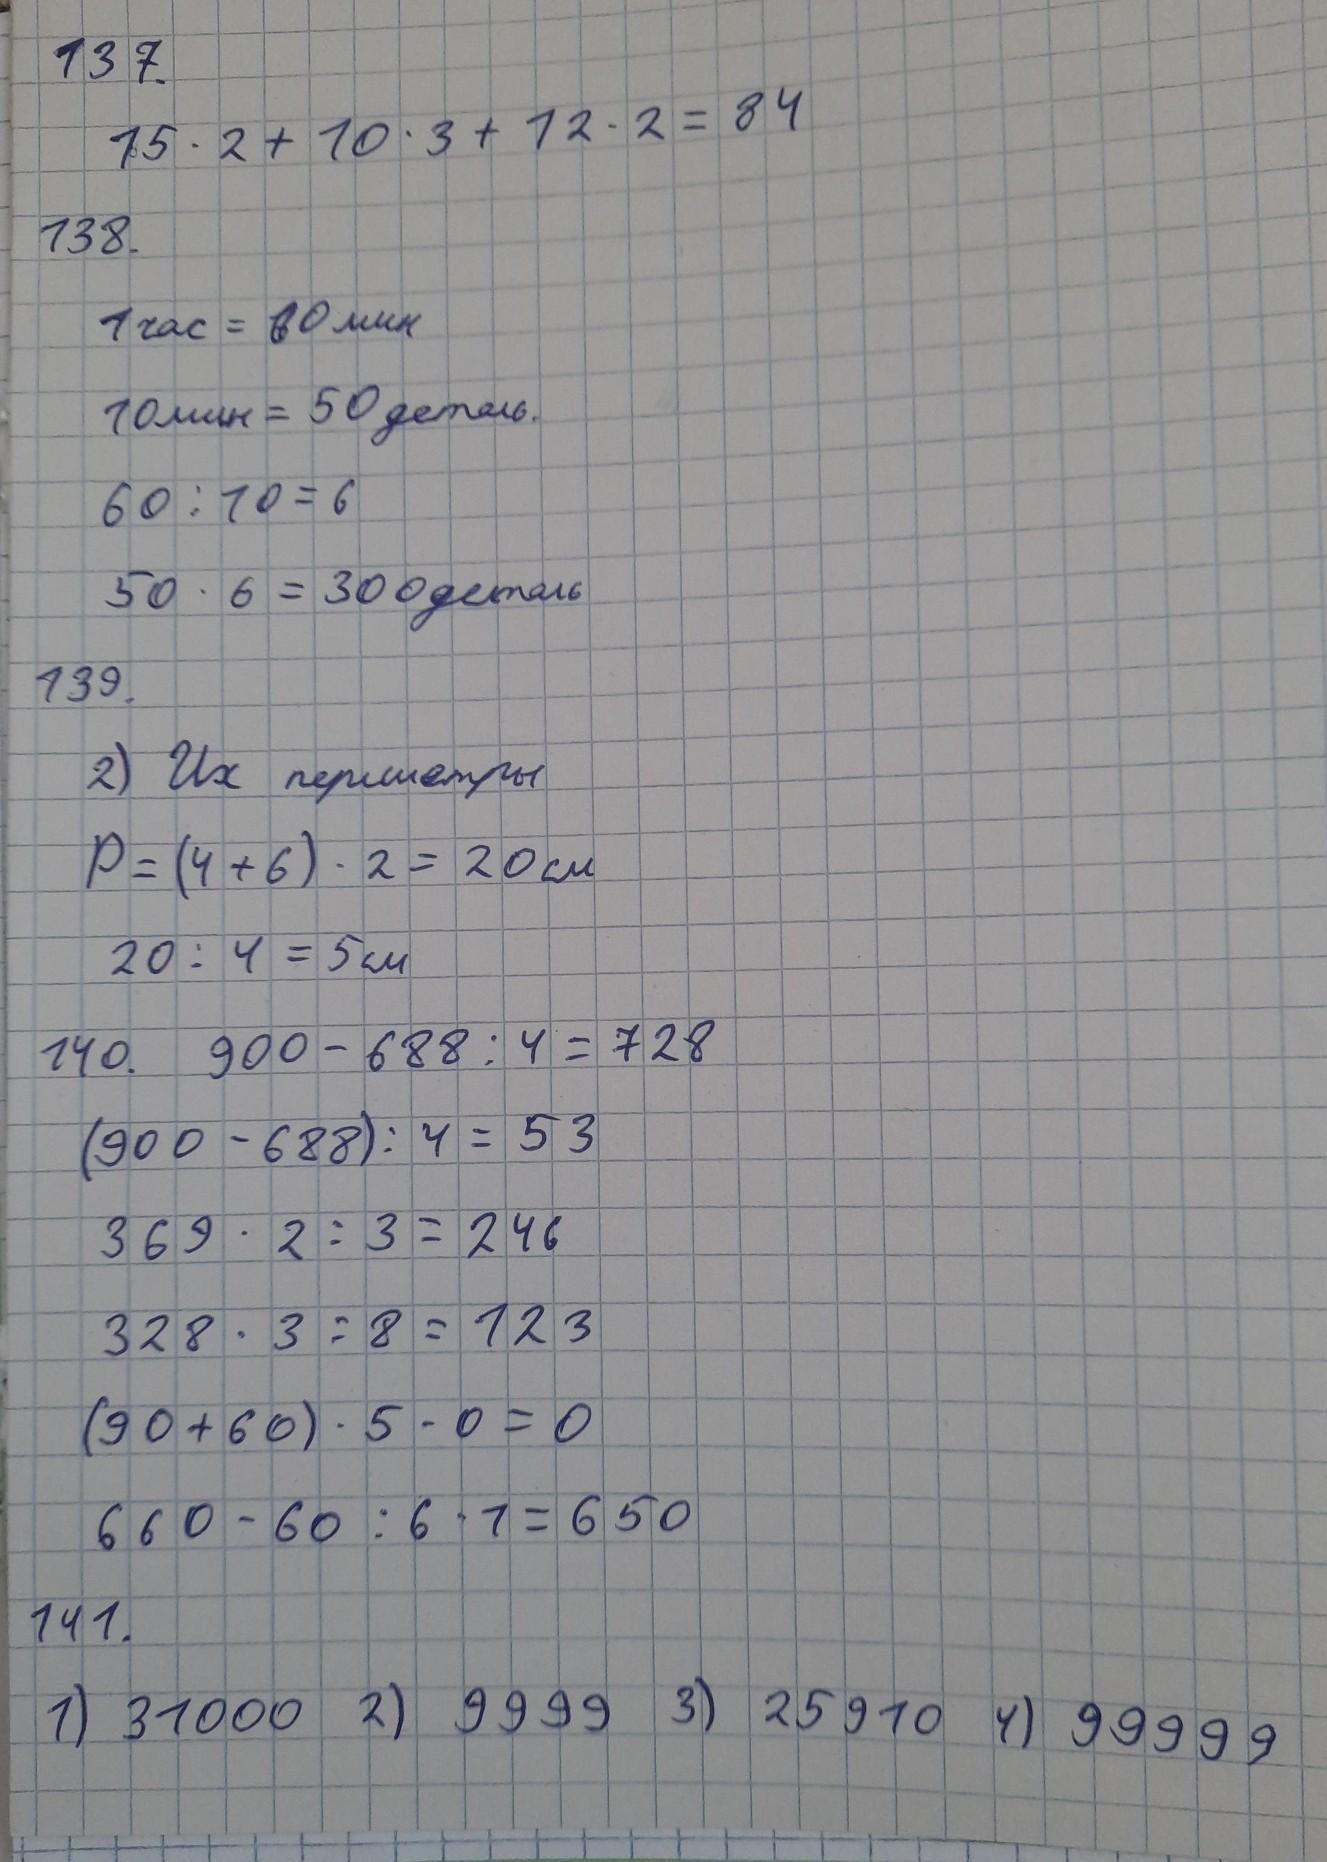 137.
15 · 2 + 10 · 3 + 12 · 2 = 84
138.
1 час = 60 мин
10 мин = 50 деталь.
60 : 10 = 6
50 · 6 = 300 деталь
139.
2) Их периметры
P = (4 + 6) · 2 = 20 см
20 : 4 = 5 см
140. 900 - 688 : 4 = 728
(900 - 688) : 4 = 53
369 · 2 : 3 = 246
328 · 3 : 8 = 123
(90 + 60) · 5 · 0 = 0
660 - 60 : 6 · 1 = 650
141.
1) 31000 2) 9999 3) 25910 4) 99999